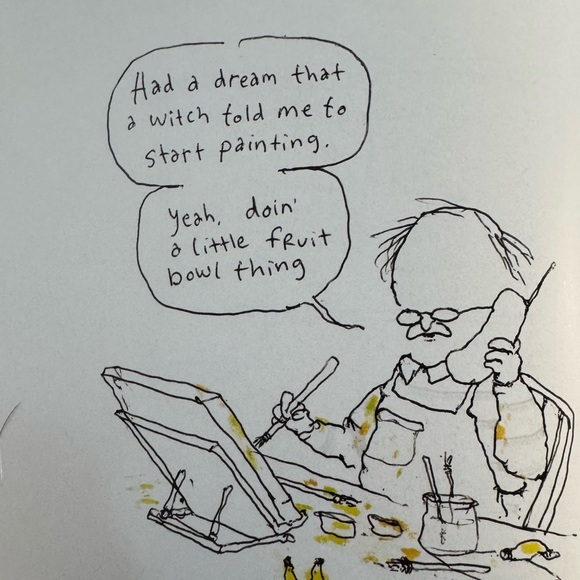 Had a dream that
a witch told me to
start painting.
Yeah, doin'
a little fruit
bowl thing